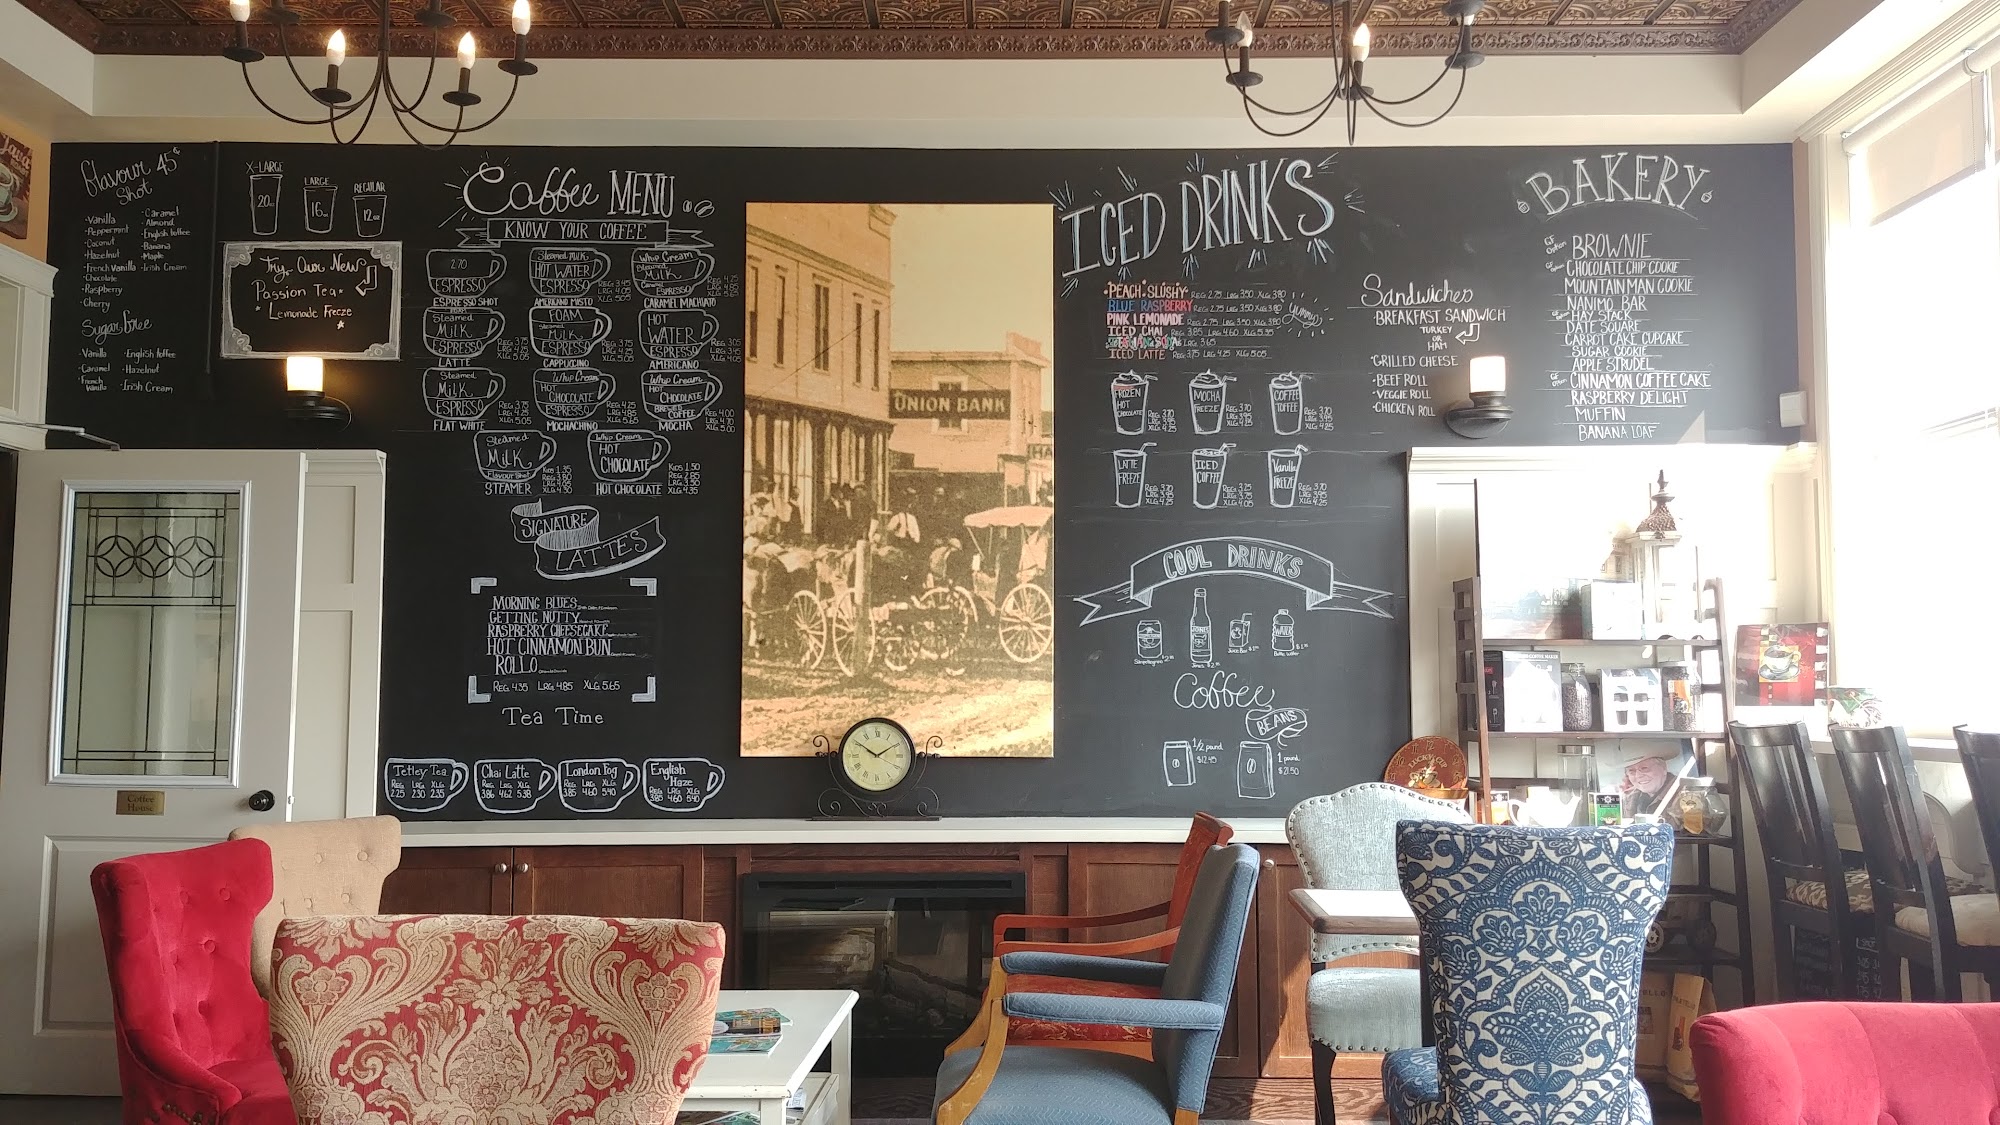 Flavour 45¢
Shot
· Vanilla
· Peppermint
· Coconut
· Hazelnut
· French Vanilla
· Chocolate
· Raspberry
· Cherry
· Caramel
· Almond
· English toffee
· Banana
· Maple
· Irish Cream
Sugar Free
· Vanilla
· Caramel
· French Vanilla
· English toffee
· Hazelnut
· Irish Cream
X-LARGE
20oz
LARGE
16oz
REGULAR
12oz
Try Our New
Passion Tea
Lemonade Freeze
Coffee MENU
KNOW YOUR COFFEE
2.70
ESPRESSO
ESPRESSO SHOT
Steamed Milk
HOT WATER
ESPRESSO
REG 3.45
LRG 4.05
XLG 5.05
AMERICANO MISTO
Whip Cream
Steamed
Milk
Caramel
ESPRESSO
REG 4.25
LRG 4.85
XLG 5.65
CARAMEL MACHIATO
FOAM
Steamed
Milk
ESPRESSO
REG 3.75
LRG 4.25
XLG 5.05
LATTE
FOAM
Steamed
Milk
ESPRESSO
REG 3.75
LRG 4.25
XLG 5.05
CAPPUCINO
HOT
WATER
ESPRESSO
REG 3.05
LRG 3.45
XLG 4.05
AMERICANO
Steamed
Milk
ESPRESSO
REG 3.75
LRG 4.25
XLG 5.05
FLAT WHITE
Whip Cream
HOT
CHOCOLATE
ESPRESSO
REG 4.25
LRG 4.85
XLG 5.65
MOCHACHINO
Whip Cream
HOT
CHOCOLATE
BREWED
COFFEE
REG 4.00
LRG 4.70
XLG 5.00
MOCHA
Steamed
Milk
Flavour Shot
KIDS 1.35
REG 3.80
LRG 4.05
XLG 4.30
STEAMER
Whip Cream
HOT
CHOCOLATE
KIDS 1.50
REG 2.85
LRG 3.65
XLG 4.35
HOT CHOCOLATE
SIGNATURE
LATTES
MORNING BLUES
GETTING NUTTY
RASPBERRY CHEESECAKE
HOT CINNAMON BUN
ROLLO
REG 4.35 LRG 4.85 XLG 5.65
Tea Time
Tetley Tea
REG LRG XLG
2.25 2.30 2.35
Chai Latte
REG LRG XLG
3.86 4.62 5.38
London Fog
REG LRG XLG
3.85 4.60 5.40
English
Haze
REG LRG XLG
3.85 4.60 5.40
UNION BANK
ICED DRINKS
· PEACH SLUSHY REG 2.75 LRG 3.50 XLG 3.80
BLUE RASPBERRY REG 2.75 LRG 3.50 XLG 3.80
PINK LEMONADE REG 2.75 LRG 3.50 XLG 3.80
Yummy
ICED CHAI REG 3.85 LRG 4.60 XLG 5.35
LRG 3.65
ICED LATTE REG 3.75 LRG 4.25 XLG 5.05
FROZEN
HOT
CHOCOLATE
REG 3.70
LRG 3.95
XLG 4.25
MOCHA
FREEZE
REG 3.70
LRG 3.95
XLG 4.25
COFFEE
TOFFEE
REG 3.70
LRG 3.95
XLG 4.25
LATTE
FREEZE
REG 3.70
LRG 3.95
XLG 4.25
ICED
COFFEE
REG 3.25
LRG 3.75
XLG 4.05
Vanilla
FREEZE
REG 3.70
LRG 3.95
XLG 4.25
COOL DRINKS
JONES
WATER
Juice Box
Jones
Bottle Water
Coffee
BEANS
1/2 pound
$12.45
1 pound
$21.50
Sandwiches
· BREAKFAST SANDWICH
TURKEY
OR
HAM
· GRILLED CHEESE
· BEEF ROLL
· VEGGIE ROLL
· CHICKEN ROLL
BAKERY
GF Option BROWNIE
GF Option CHOCOLATE CHIP COOKIE
MOUNTAIN MAN COOKIE
NANIMO BAR
GF Option HAY STACK
DATE SQUARE
CARROT CAKE CUPCAKE
SUGAR COOKIE
APPLE STRUDEL
GF Option CINNAMON COFFEE CAKE
RASPBERRY DELIGHT
MUFFIN
BANANA LOAF
Java
Coffee
House
LUCKY CUP